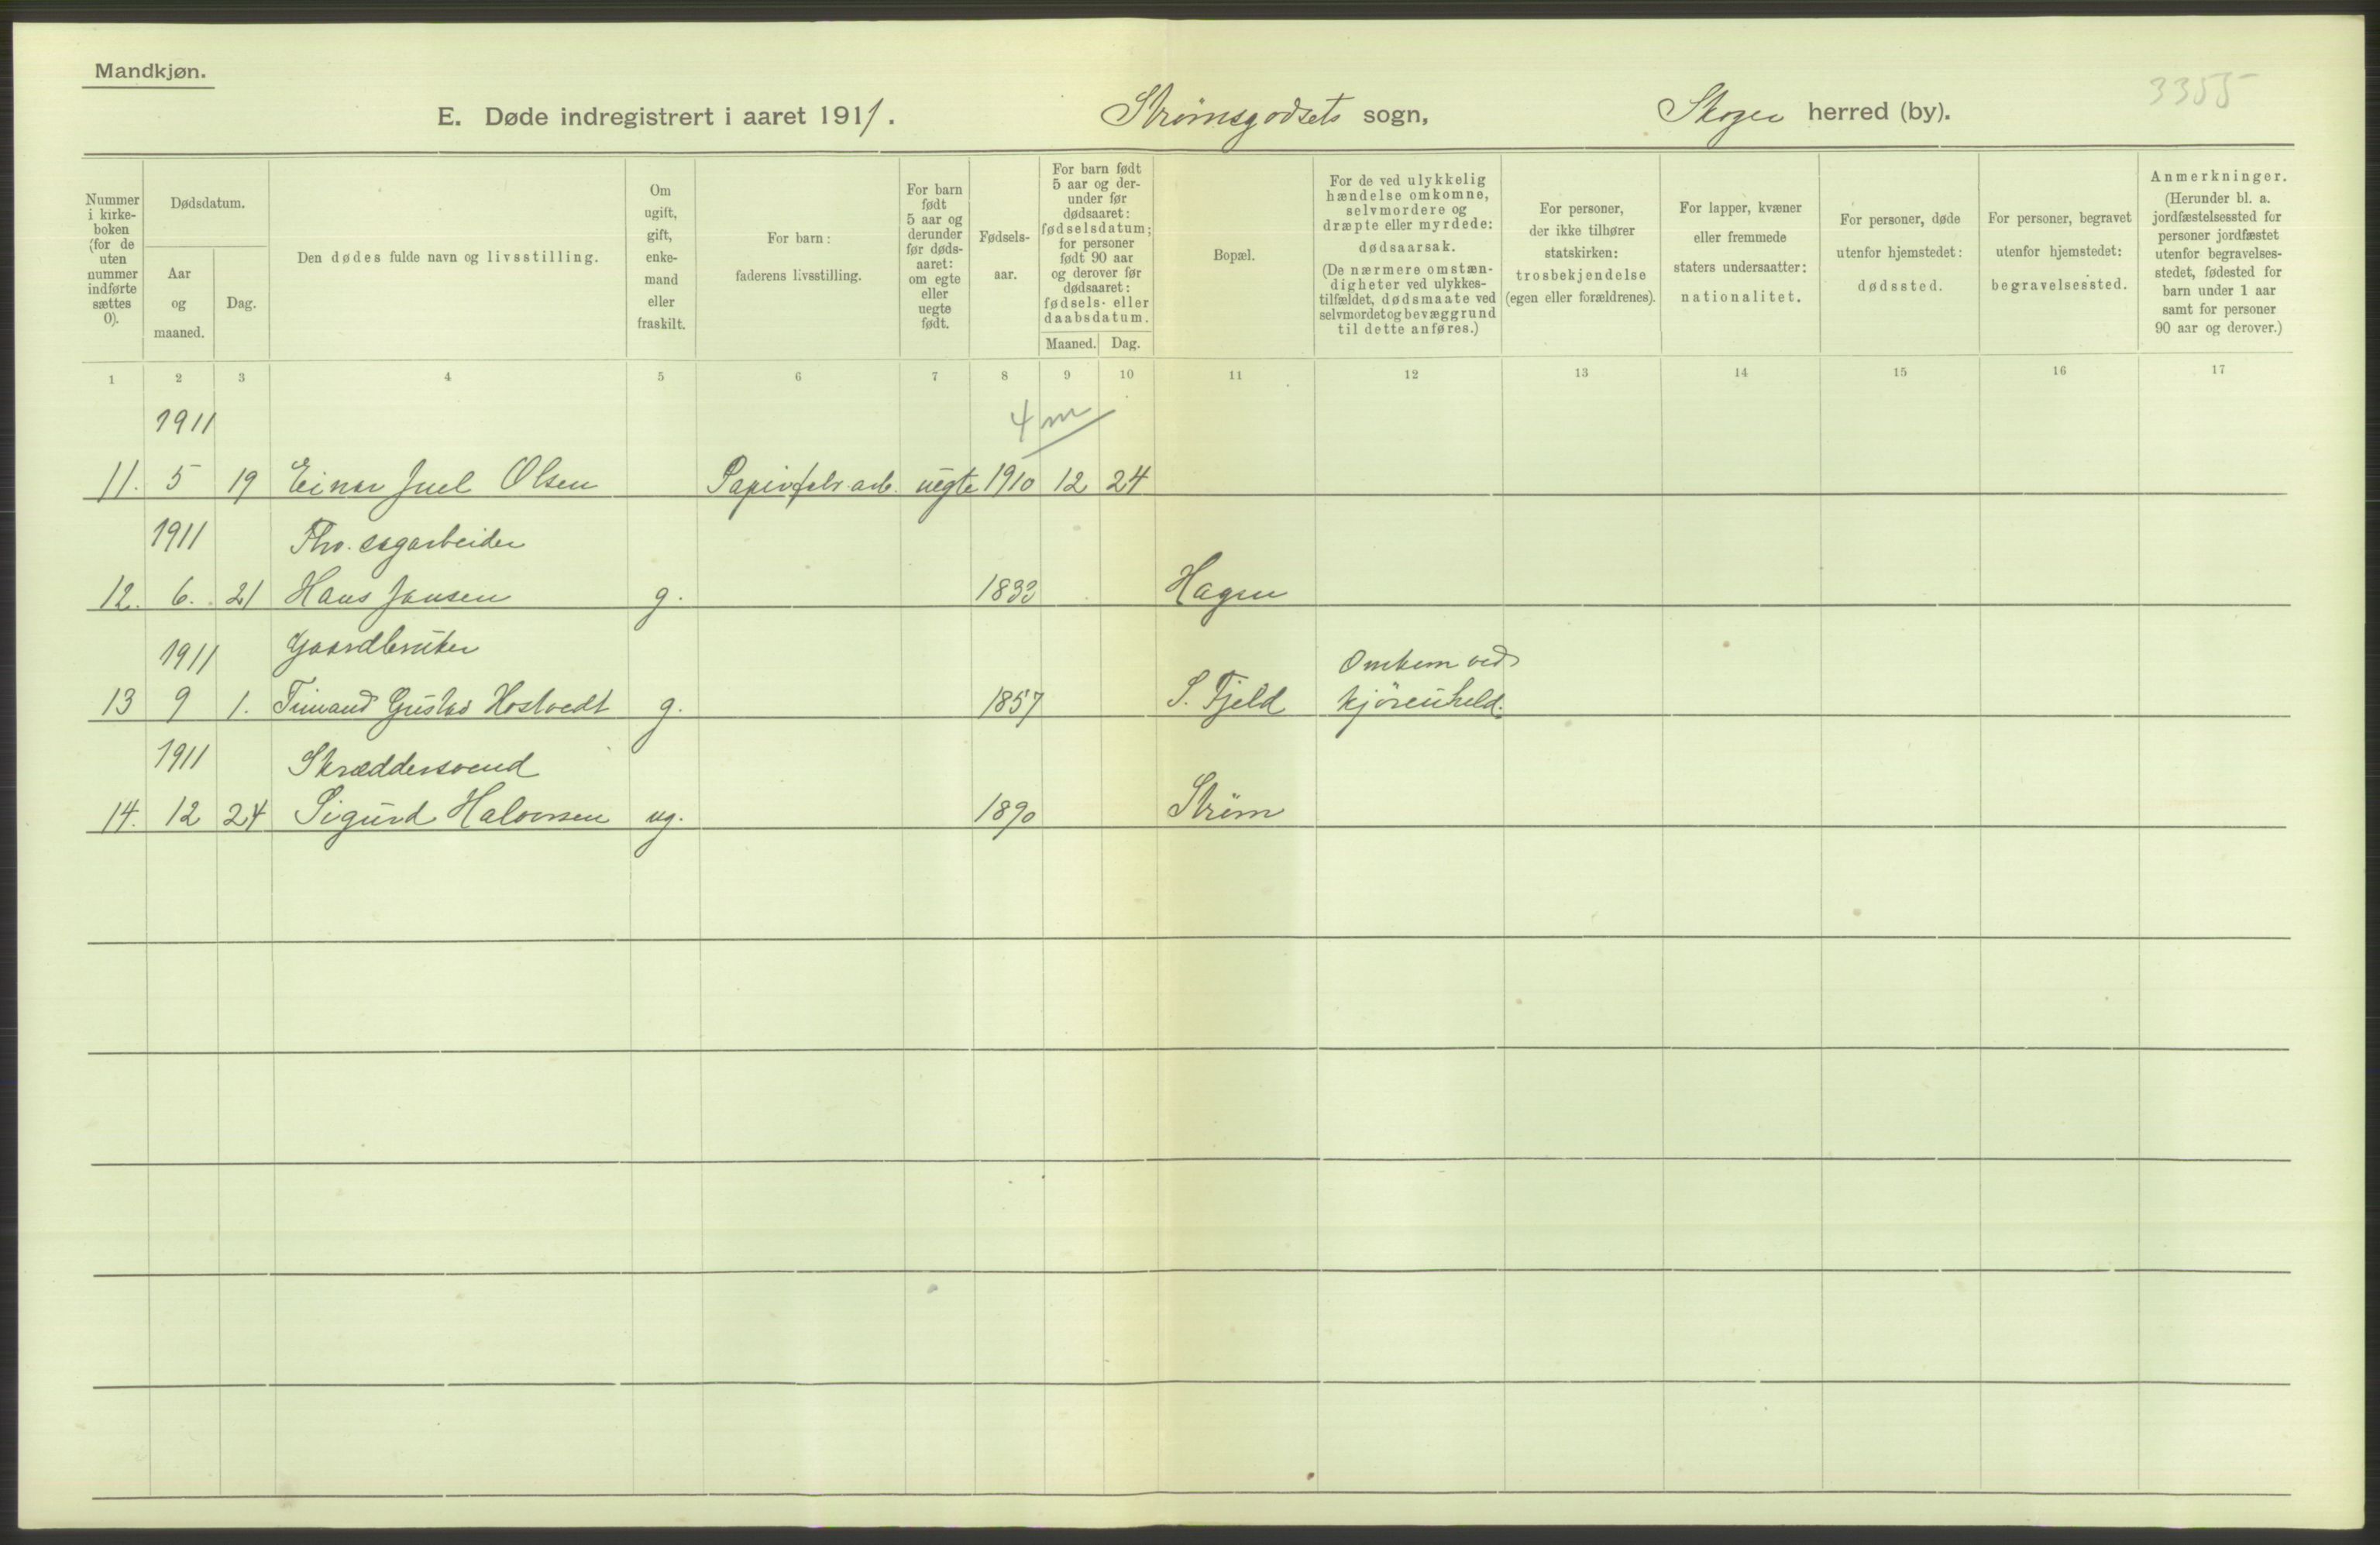 Mandkjøn.
3355
E. Døde indregistrert i aaret 1911. Strømsgodsets sogn, Skoger herred (by).
Nummer i kirke-boken (for de uten nummer indførte sættes 0).
Dødsdatum.
Aar og maaned.
Dag.
Den dødes fulde navn og livsstilling.
Om ugift, gift, enke-mand eller fraskilt.
For barn: faderens livsstilling.
For barn født 5 aar og derunder før døds-aaret: om egte eller uegte født.
Fødsels-aar.
For barn født 5 aar og der-under før dødsaaret: fødselsdatum; for personer født 90 aar og derover før dødsaaret: fødsels- eller daabsdatum.
Maaned. Dag.
Bopæl.
For de ved ulykkelig hændelse omkomne, selvmordere og dræpte eller myrdede: dødsaarsak. (De nærmere omstæn-digheter ved ulykkes-tilfældet, dødsmaate ved selvmordet og bevæggrund til dette anføres.)
For personer, der ikke tilhører statskirken: trosbekjendelse (egen eller forældrenes).
For lapper, kvæner eller fremmede staters undersaatter: nationalitet.
For personer, døde utenfor hjemstedet: dødssted.
For personer, begravet utenfor hjemstedet: begravelsessted.
Anmerkninger. (Herunder bl. a. jordfæstelsessted for personer jordfæstet utenfor begravelses-stedet, fødested for barn under 1 aar samt for personer 90 aar og derover.)
1 2 3 4 5 6 7 8 9 10 11 12 13 14 15 16 17
1911 4 m
11. 5 19 Einar Juel Olsen Papirfabr. arb. uegte 1910 12 24
1911 Fhv. sagarbeider
12. 6. 21 Hans Jansen g. 1833 Hagen
1911 Gaardbruker Omkom ved
13 9 1. Gustav Hostvedt g. 1857 S. Fjeld kjøreuheld.
1911 Skræddersvend
14. 12 24 Sigurd Halvorsen ug. 1890 Strøm